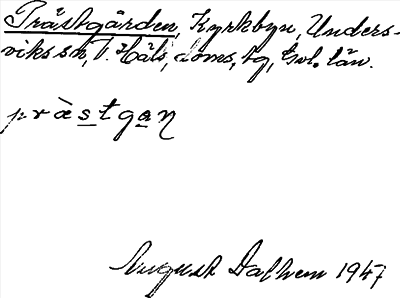 Prästgården, Kyrkbyn, Unders-
viks sn, V. Häls. doms. tg, Gvl. län.
præ̀stga̲ṇ
August Dalhem 1947